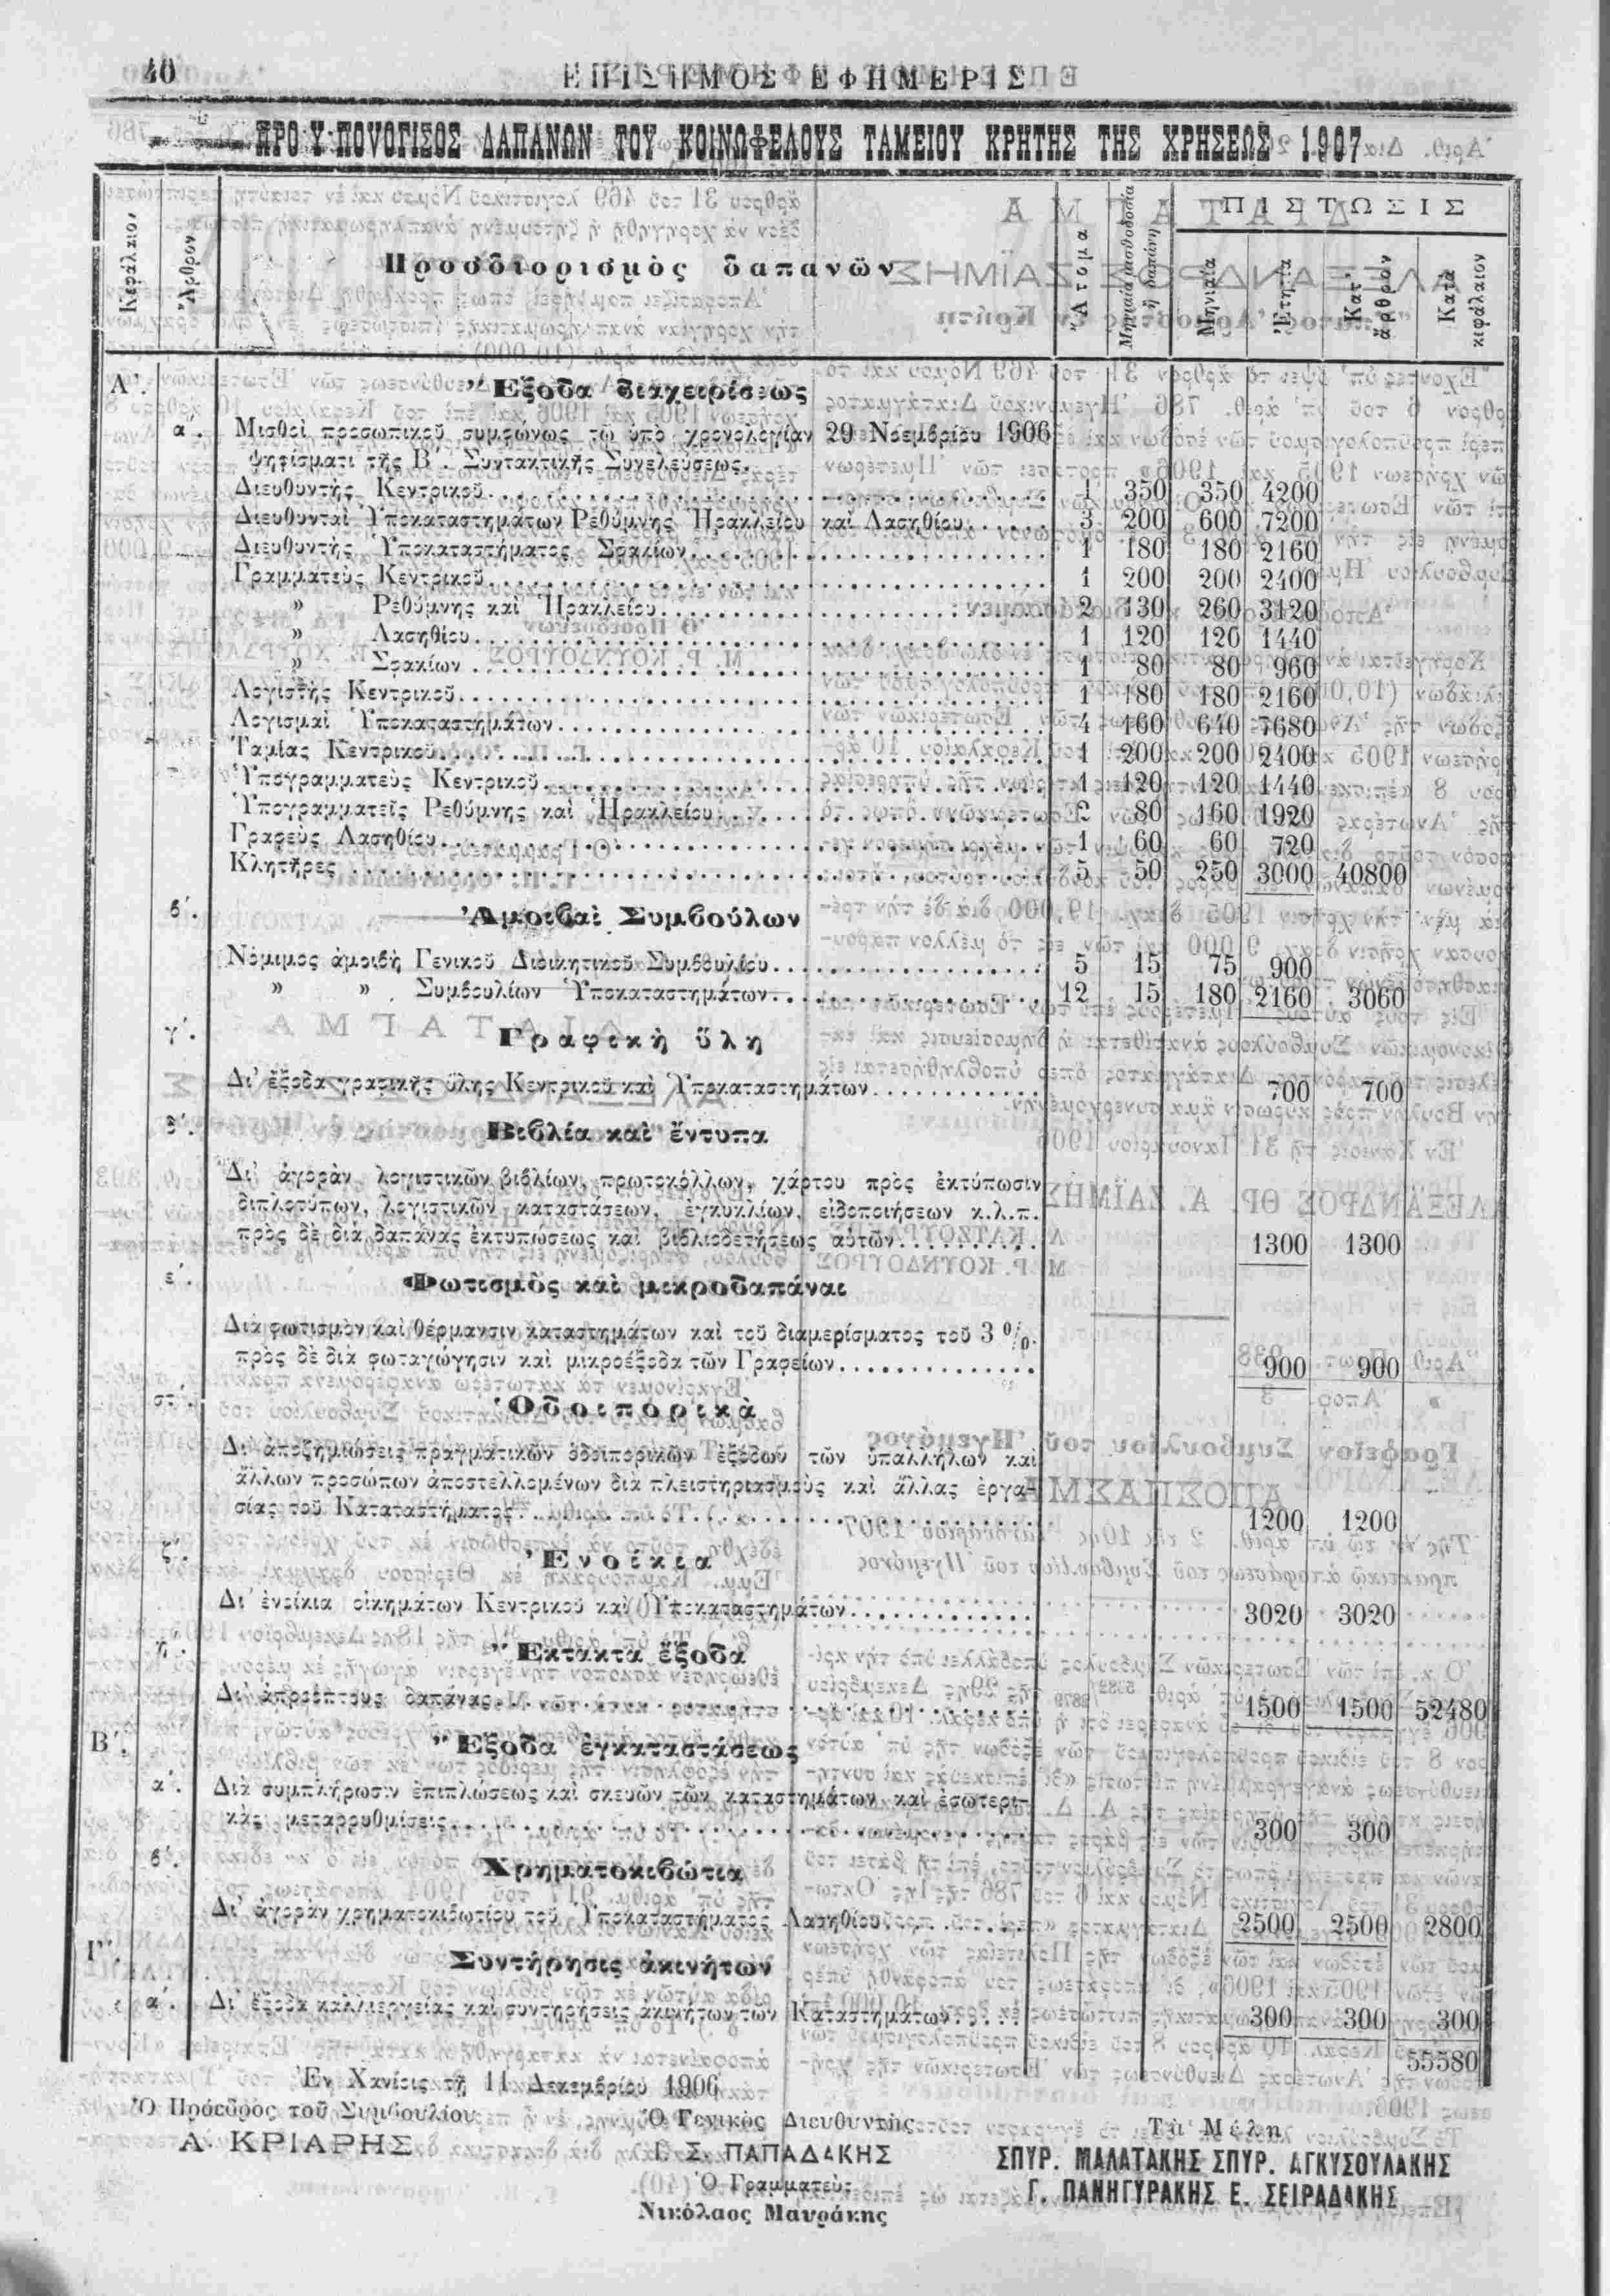 40
ΕΠΙΣΗΜΟΣ ΕΦΗΜΕΡΙΣ
ΠΡΟΫΠΟΛΟΓΙΣΜΟΣ ΔΑΠΑΝΩΝ ΤΟΥ ΚΟΙΝΩΦΕΛΟΥΣ ΤΑΜΕΙΟΥ ΚΡΗΤΗΣ ΤΗΣ ΧΡΗΣΕΩΣ 1907
Κεφάλαιον Ἄρθρον Προσδιορισμὸς δαπανῶν Ἄτομα Μηνιαία μισθοδοσία ἢ δαπάνη ΠΙΣΤΩΣΙΣ
Μηνιαία Ἐτησία Κατ' ἄρθρον Κατὰ κεφάλαιον
Α'. Ἔξοδα διαχειρίσεως
α'. Μισθοὶ προσωπικοῦ συμφώνως τῷ ὑπὸ χρονολογίαν 29 Νοεμβρίου 1906
ψηφίσματι τῆς Β'. Συντακτικῆς Συνελεύσεως.
Διευθυντὴς Κεντρικοῦ 1 350 350 4200
Διευθυνταὶ Ὑποκαταστημάτων Ρεθύμνης Ἡρακλείου καὶ Λασηθίου 3 200 600 7200
Διευθυντὴς Ὑποκαταστήματος Σφακίων 1 180 180 2160
Γραμματεὺς Κεντρικοῦ 1 200 200 2400
» Ρεθύμνης καὶ Ἡρακλείου 2 130 260 3120
» Λασηθίου 1 120 120 1440
» Σφακίων 1 80 80 960
Λογιστὴς Κεντρικοῦ 1 180 180 2160
Λογισταὶ Ὑποκαταστημάτων 4 160 640 7680
Ταμίας Κεντρικοῦ 1 200 200 2400
Ὑπογραμματεὺς Κεντρικοῦ 1 120 120 1440
Ὑπογραμματεῖς Ρεθύμνης καὶ Ἡρακλείου 2 80 160 1920
Γραφεὺς Λασηθίου 1 60 60 720
Κλητῆρες 5 50 250 3000 40800
β'. Ἀμοιβαὶ Συμβούλων
Νόμιμος ἀμοιβὴ Γενικοῦ Διοικητικοῦ Συμβουλίου 5 15 75 900
» » Συμβουλίων Ὑποκαταστημάτων 12 15 180 2160 3060
γ'. Γραφικὴ ὕλη
Δι' ἔξοδα γραφικῆς ὕλης Κεντρικοῦ καὶ Ὑποκαταστημάτων 700 700
δ'. Βιβλία καὶ ἔντυπα
Δι' ἀγορὰν λογιστικῶν βιβλίων, πρωτοκόλλων, χάρτου πρὸς ἐκτύπωσιν
διπλοτύπων, λογιστικῶν καταστάσεων, ἐγκυκλίων, εἰδοποιήσεων κ.λ.π.
πρὸς δὲ διὰ δαπάνας ἐκτυπώσεως καὶ βιβλιοδετήσεως αὐτῶν 1300 1300
ε'. Φωτισμὸς καὶ μικροδαπάναι
Διὰ φωτισμὸν καὶ θέρμανσιν καταστημάτων καὶ τοῦ διαμερίσματος τοῦ 3 0/0.
πρὸς δὲ διὰ φωταγώγησιν καὶ μικροέξοδα τῶν Γραφείων 900 900
στ'. Ὁδοιπορικὰ
Δι' ἀποζημιώσεις πραγματικῶν ὁδοιπορικῶν ἐξόδων τῶν ὑπαλλήλων καὶ
ἄλλων προσώπων ἀποστελλομένων διὰ πλειστηριασμοὺς καὶ ἄλλας ἐργα-
σίας τοῦ Καταταστήματος 1200 1200
ζ'. Ἐνοίκια
Δι' ἐνοίκια οἰκημάτων Κεντρικοῦ καὶ Ὑποκαταστημάτων 3020 3020
η'. Ἔκτακτα ἔξοδα
Δι' ἀπροόπτους δαπάνας 1500 1500 52480
Β'. Ἔξοδα ἐγκαταστάσεως
α'. Διὰ συμπλήρωσιν ἐπιπλώσεως καὶ σκευῶν τῶν καταστημάτων καὶ ἐσωτερι-
κὰς μεταρρυθμίσεις 300 300
β'. Χρηματοκιβώτια
Δι' ἀγορὰν χρηματοκιβωτίου τοῦ Ὑποκαταστήματος Λασηθίου 2500 2500 2800
Γ'. Συντήρησις ἀκινήτων
α'. Δι' ἔξοδα καλλιεργείας καὶ συντηρήσεις ἀκινήτων τῶν Καταστημάτων 300 300 300
55580
Ἐν Χανίοις τῇ 11 Δεκεμβρίου 1906
Ὁ Πρόεδρος τοῦ Συμβουλίου
Α. ΚΡΙΑΡΗΣ
Ὁ Γενικὸς Διευθυντὴς
Γ. Σ. ΠΑΠΑΔΑΚΗΣ
Ὁ Γραμματεὺς
Νικόλαος Μαυράκης
Τὰ Μέλη
ΣΠΥΡ. ΜΑΛΑΤΑΚΗΣ ΣΠΥΡ. ΑΓΚΥΣΟΥΛΑΚΗΣ
Γ. ΠΑΝΗΓΥΡΑΚΗΣ Ε. ΣΕΙΡΑΔΑΚΗΣ